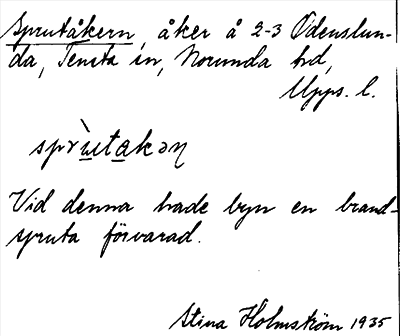 Sprutåkern, åker å 2-3 Odenslun-
da, Tensta sn, Norunda hd,
Upps. l.
sprùtakən
Vid denna hade byn en brand-
spruta förvarad.
Stina Holmström 1935